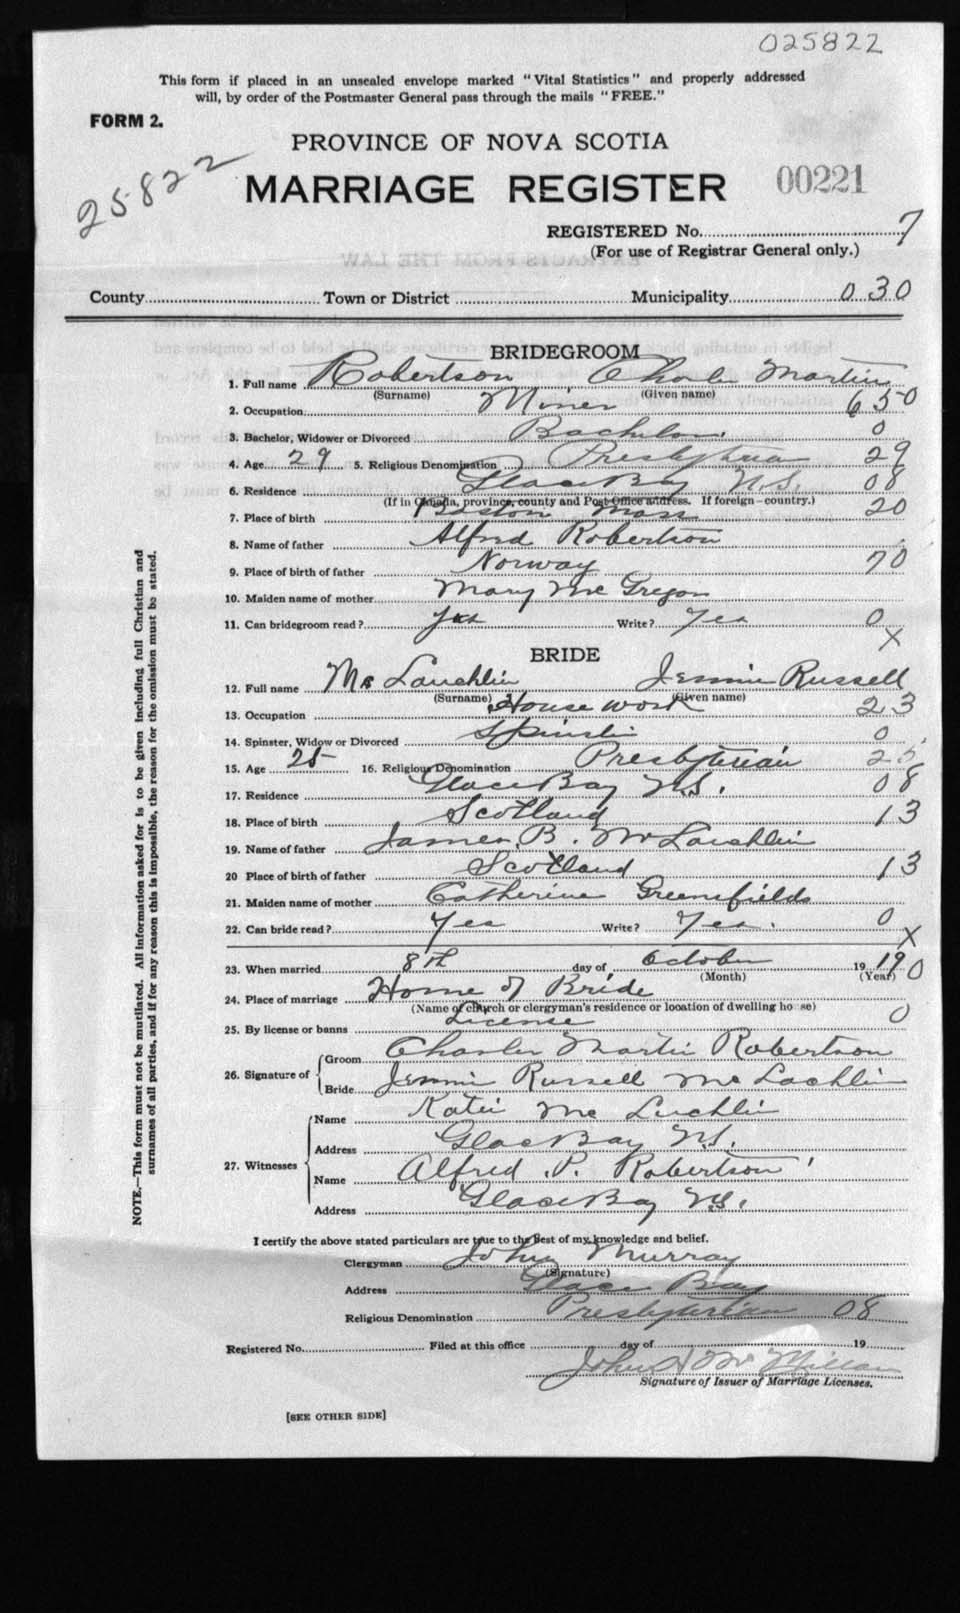 025822
This form if placed in an unsealed envelope marked "Vital Statistics" and properly addressed
will, by order of the Postmaster General pass through the mails "FREE."
FORM 2.
PROVINCE OF NOVA SCOTIA
25822
MARRIAGE REGISTER 00221
REGISTERED No. 7
(For use of Registrar General only.)
County Town or District Municipality 030
BRIDEGROOM
1. Full name Robertson Charles Martin
(Surname) (Given name)
2. Occupation Miner 650
3. Bachelor, Widower or Divorced Bachelor. 0
4. Age 29 5. Religious Denomination Presbyterian 29
6. Residence Glace Bay N.S. 08
(If in Canada, province, county and Post Office address. If foreign—country.)
7. Place of birth Boston Mass 20
8. Name of father Alfred Robertson
9. Place of birth of father Norway 70
10. Maiden name of mother Mary Mc Gregor
11. Can bridegroom read? Yes Write? Yes 0
X
BRIDE
12. Full name Mc Lauchlin Jennie Russell
(Surname) (Given name)
13. Occupation House work 23
14. Spinster, Widow or Divorced Spinster 0
15. Age 25 16. Religious Denomination Presbyterian 25
17. Residence Glace Bay N.S. 08
18. Place of birth Scotland 13
19. Name of father James B. McLauchlin
20 Place of birth of father Scotland 13
21. Maiden name of mother Catherine Greenefields
22. Can bride read? Yes Write? Yes. 0
X
23. When married 8th day of October 19 19 0
(Month) (Year)
24. Place of marriage Home of Bride
(Name of church or clergyman's residence or location of dwelling house)
25. By license or banns License 0
26. Signature of Groom Charles Martin Robertson
Bride Jennie Russell Mc Lachlin
27. Witnesses Name Katie Mc Luchlin
Address Glace Bay N.S.
Name Alfred P. Robertson
Address Glace Bay N.S.
I certify the above stated particulars are true to the best of my knowledge and belief.
Clergyman John Murray
(Signature)
Address Glace Bay
Religious Denomination Presbyterian 08
Registered No. Filed at this office day of 19
John H McMillan
Signature of Issuer of Marriage Licenses.
[SEE OTHER SIDE]
NOTE.—This form must not be mutilated. All information asked for is to be given including full Christian and
surnames of all parties, and if for any reason this is impossible, the reason for the omission must be stated.